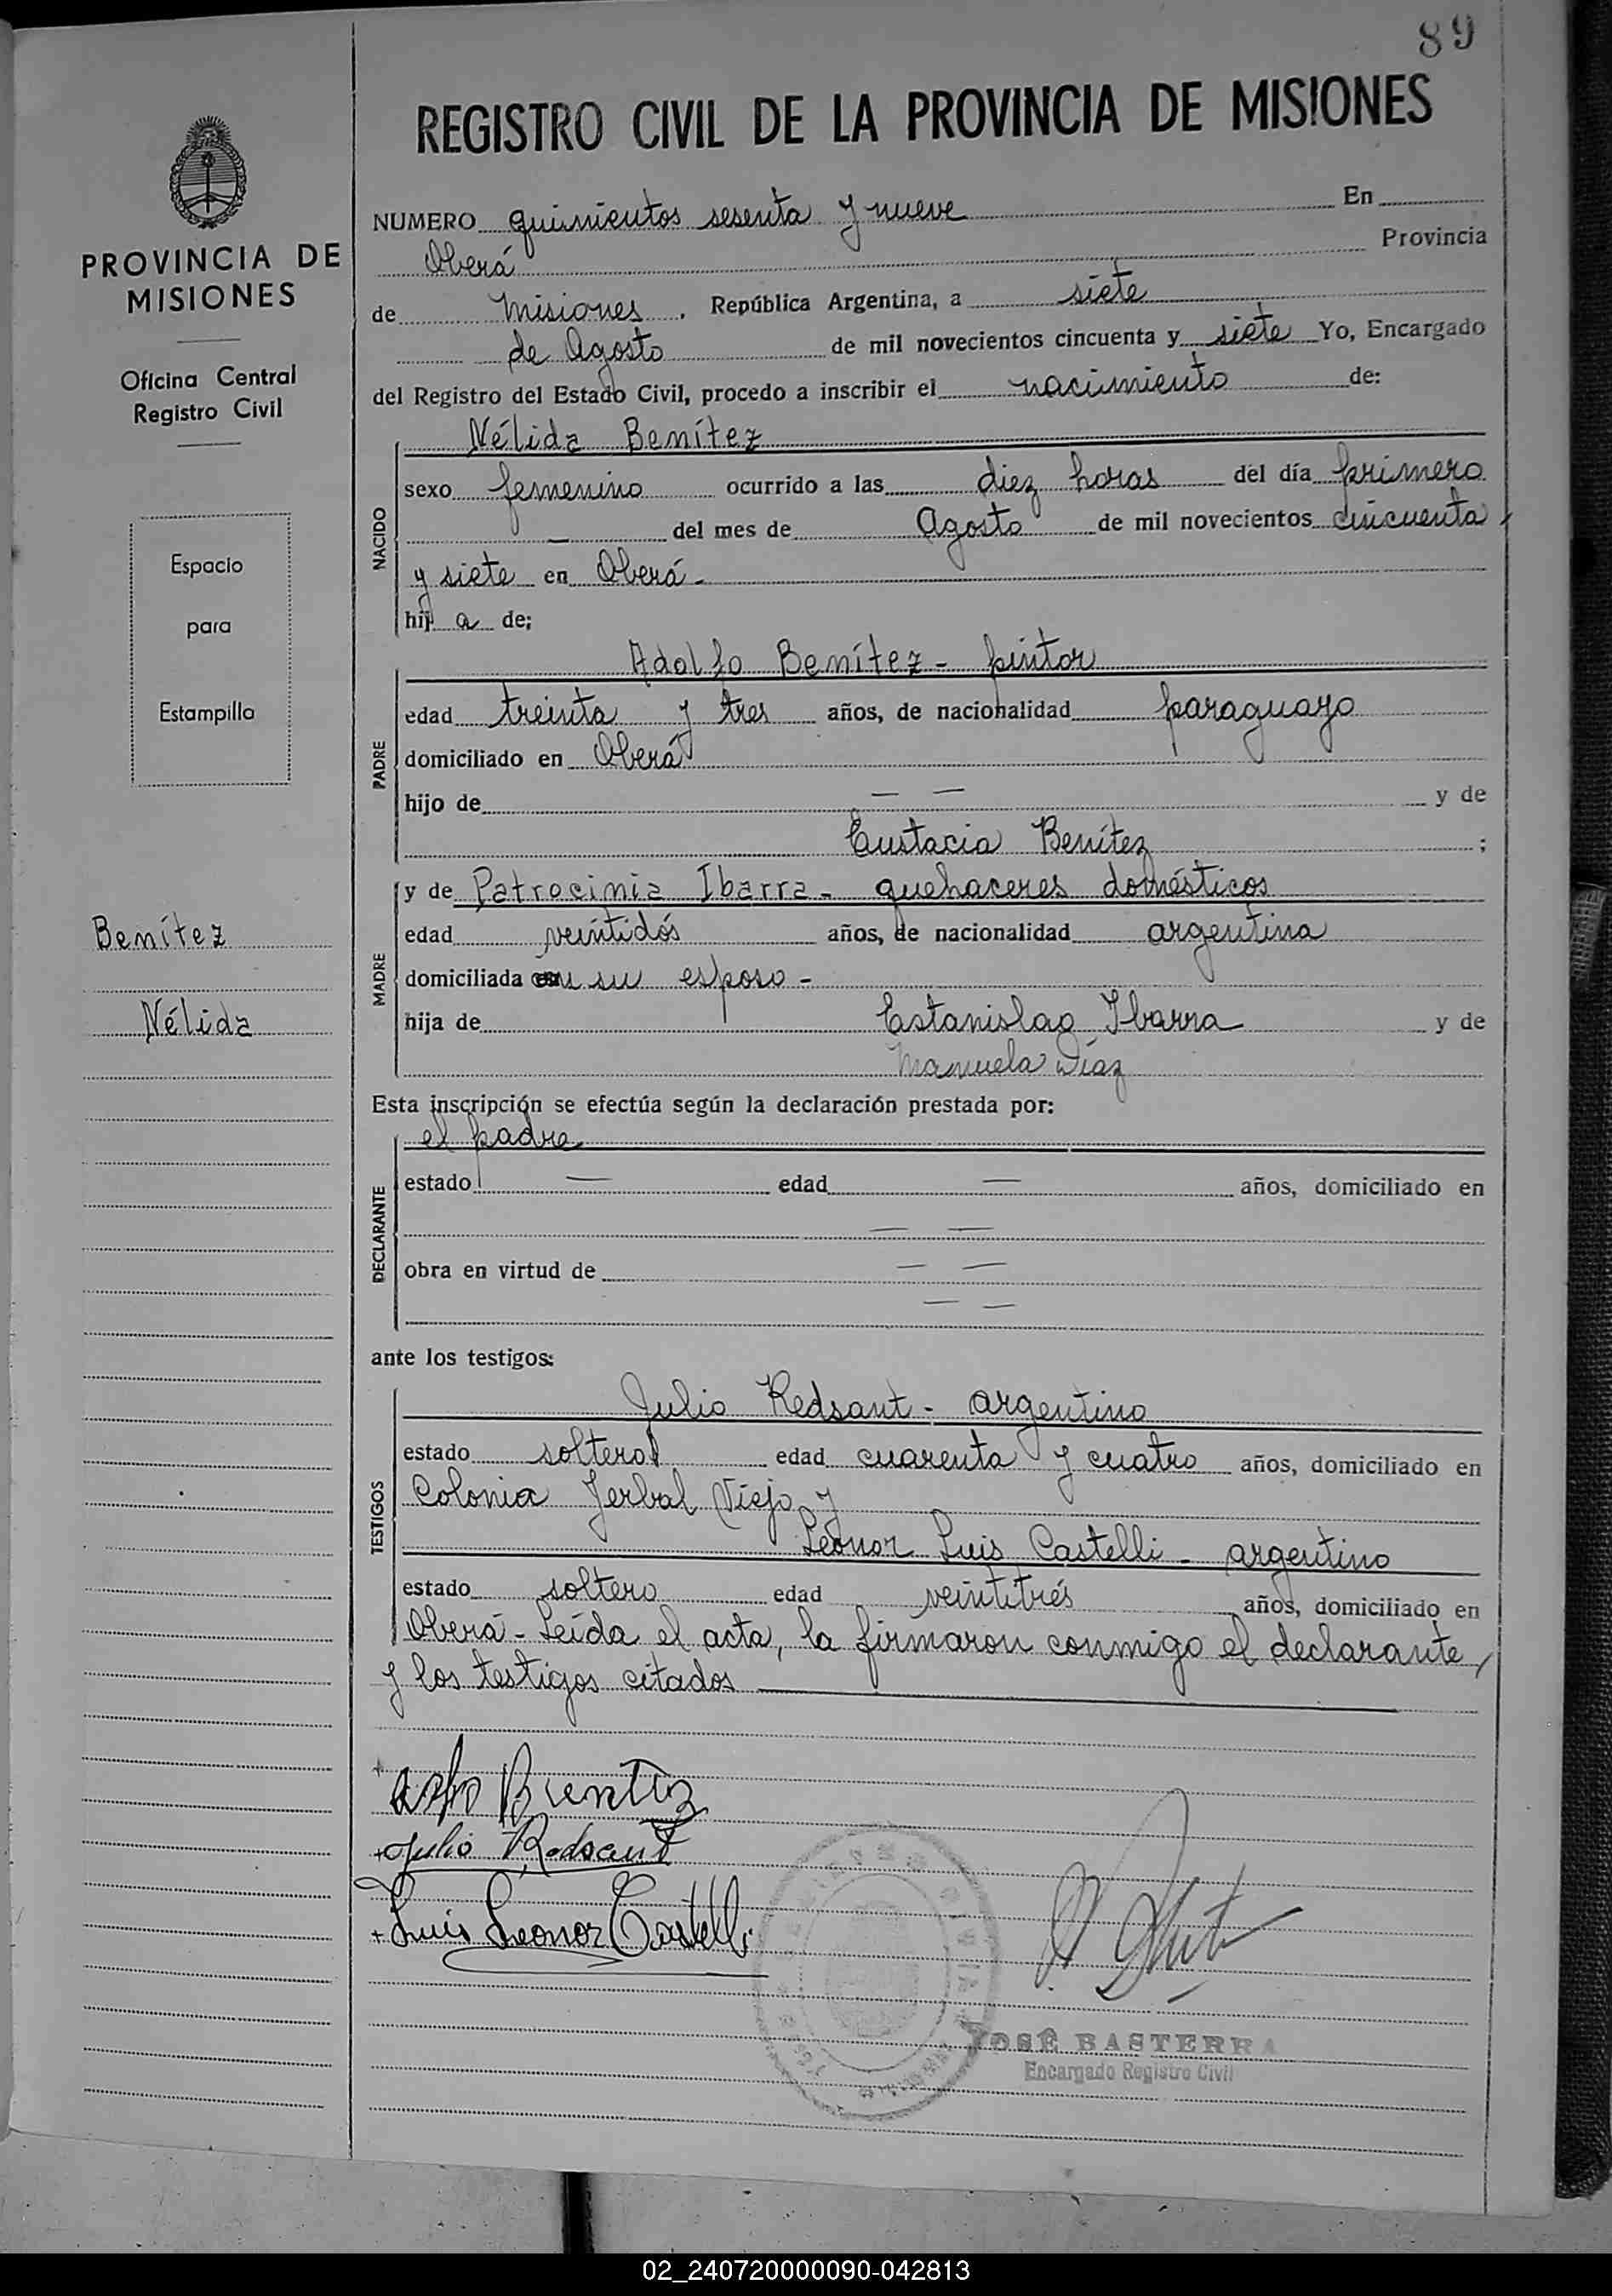 89
REGISTRO CIVIL DE LA PROVINCIA DE MISIONES
PROVINCIA DE
MISIONES
Oficina Central
Registro Civil
Espacio
para
Estampilla
Benítez
Nélida
NUMERO quinientos sesenta y nueve En
Oberá Provincia
de Misiones, República Argentina, a siete
de Agosto de mil novecientos cincuenta y siete Yo, Encargado
del Registro del Estado Civil, procedo a inscribir el nacimiento de:
NACIDO
Nélida Benítez
sexo femenino ocurrido a las diez horas del día primero
— del mes de Agosto de mil novecientos cincuenta
y siete en Oberá -
hij a de;
PADRE
Adolfo Benítez - pintor
edad treinta y tres años, de nacionalidad paraguayo
domiciliado en Oberá
hijo de — — y de
Eustacia Benítez ;
MADRE
y de Patrocinia Ibarra - quehaceres domésticos
edad veintidós años, de nacionalidad argentina
domiciliada con su esposo -
hija de Estanislao Ibarra y de
Manuela Díaz
Esta inscripción se efectúa según la declaración prestada por:
DECLARANTE
el padre
estado — edad — años, domiciliado en
— —
obra en virtud de — —
— —
ante los testigos:
TESTIGOS
Julio Redsant - argentino
estado soltero edad cuarenta y cuatro años, domiciliado en
Colonia Yerbal Viejo y
Leonor Luis Castelli - argentino
estado soltero edad veintitrés años, domiciliado en
Oberá - Leída el acta, la firmaron conmigo el declarante,
y los testigos citados
Benitez
Julio Redsant
Luis Leonor Castelli
JOSÉ BASTERRA
Encargado Registro Civil
02_240720000090-042813